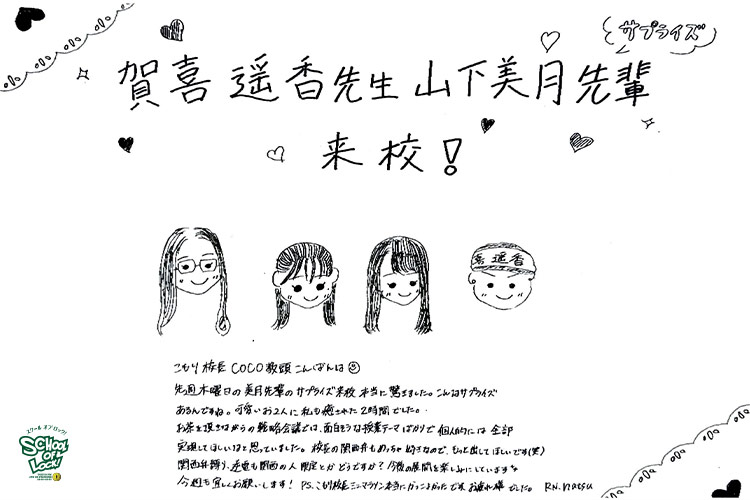 サプライズ
賀喜遥香先生山下美月先輩
来校!
喜遥香
こもり校長 COCO教頭 こんばんは
先週木曜日の美月先輩のサプライズ来校 本当に驚きました。こんなサプライズ
あるんですね。可愛いお2人に私も癒された2時間でした。
お茶を頂きながらの戦略会議では、面白そうな授業テーマばかりで個人的には全部
実現してほしいなと思っていました。校長の関西弁もめっちゃ好きなので、もっと出してほしいです(笑)
関西弁縛り、逆電も関西の人限定とかどうですか？今後の展開を楽しみにしています
今週も宜しくお願いします! P.S. こもり校長ミニマラソン本当にかっこよかったです お疲れ様でした。 R.N. natsu
スクール オブ ロック!
SCHOOL OF LOCK!